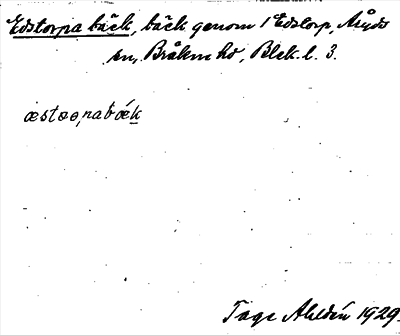 Edstorpa bäck, bäck genom 1 Edstorp, Åryds
sn, Bräkne hd, Blek. l. 3.
Tage Ahldén 1929.